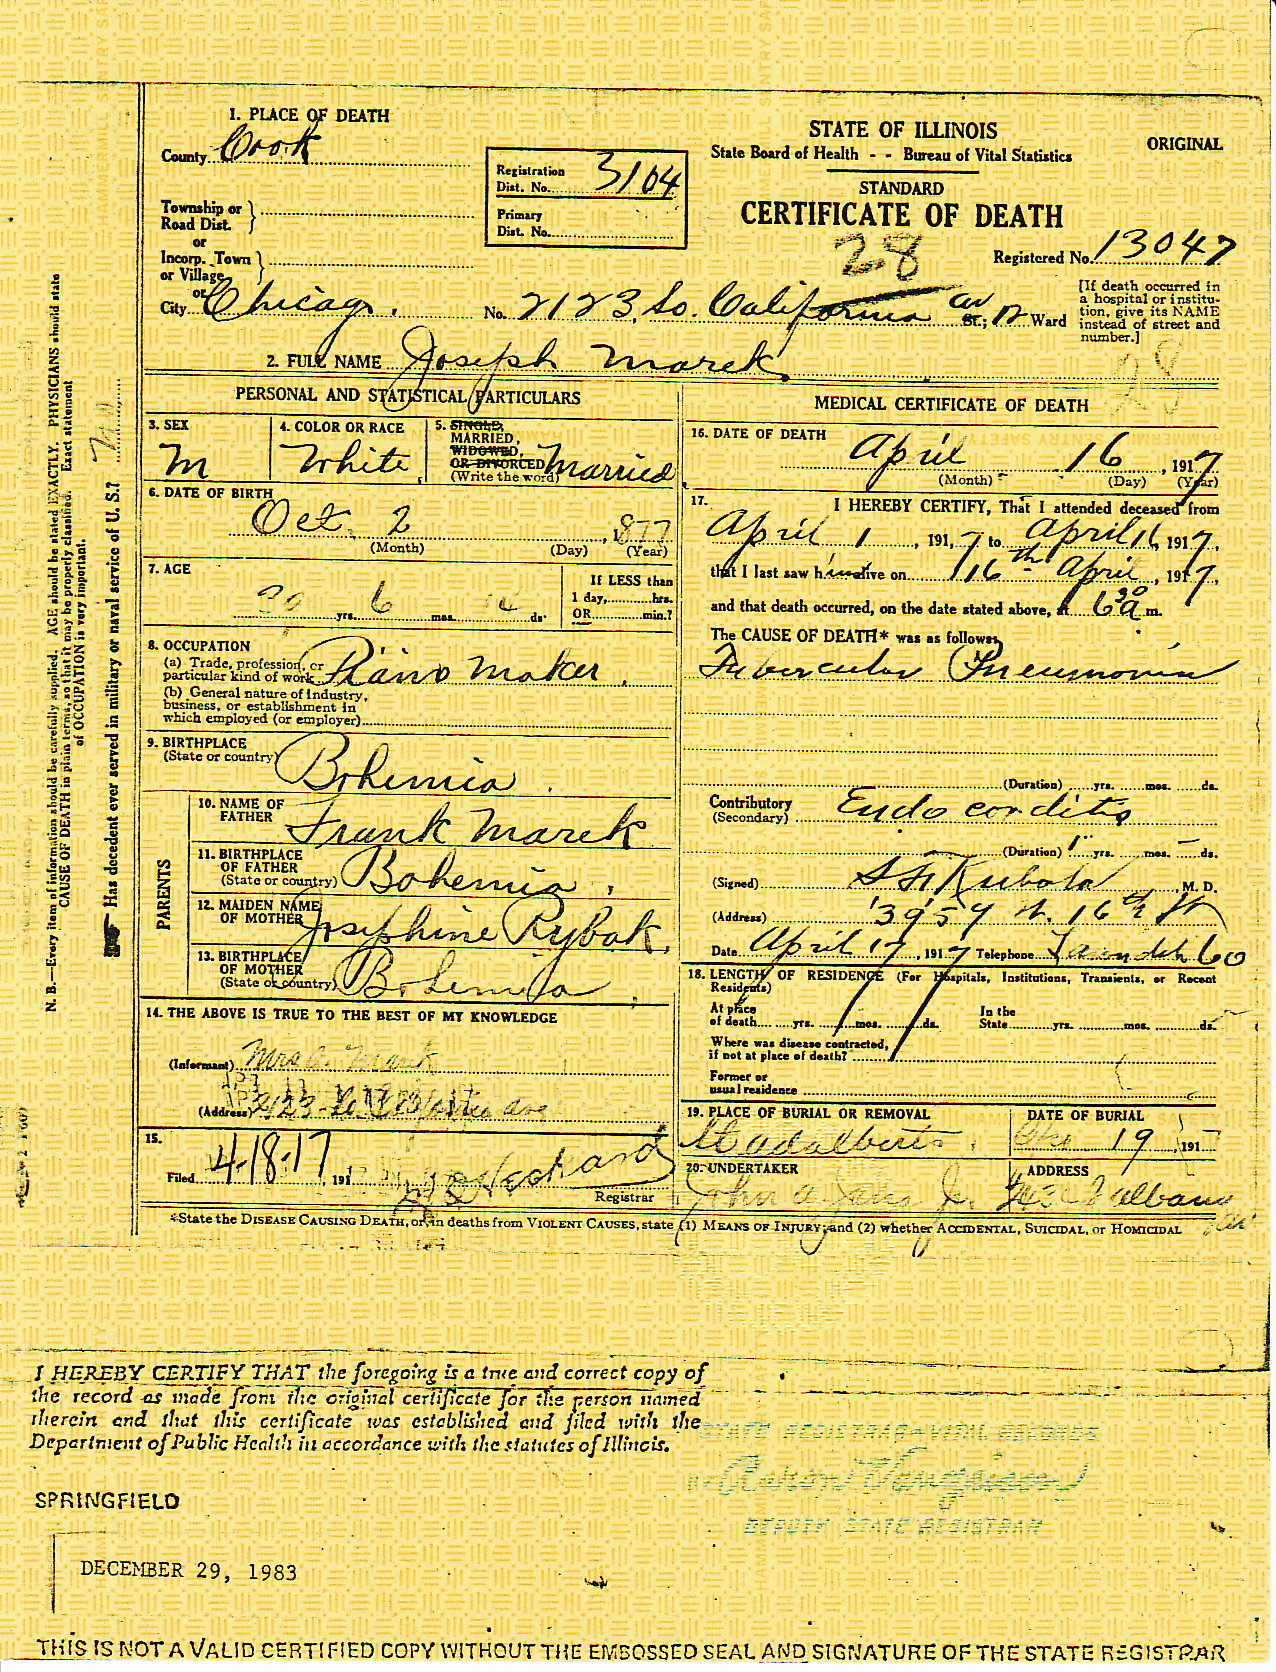 1. PLACE OF DEATH
County Cook
Registration Dist. No. 3104
Primary Dist. No.
STATE OF ILLINOIS
State Board of Health - - Bureau of Vital Statistics
ORIGINAL
STANDARD
CERTIFICATE OF DEATH
28
Registered No. 13047
Township or Road Dist.
or
Incorp. Town or Village
or
City Chicago. No. 2123 So. California av St.; 12 Ward
[If death occurred in a hospital or institution, give its NAME instead of street and number.]
2. FULL NAME Joseph Marek
28
PERSONAL AND STATISTICAL PARTICULARS
3. SEX
M
4. COLOR OR RACE
White
5. SINGLE, MARRIED, WIDOWED, OR DIVORCED (Write the word) Married
6. DATE OF BIRTH
Oct. 2, 1877
(Month) (Day) (Year)
7. AGE
39 yrs. 6 mos. 14 ds.
If LESS than 1 day, hrs. OR min.?
8. OCCUPATION
(a) Trade, profession, or particular kind of work Piano Maker
(b) General nature of industry, business, or establishment in which employed (or employer)
9. BIRTHPLACE
(State or country) Bohemia
PARENTS
10. NAME OF FATHER Frank Marek
11. BIRTHPLACE OF FATHER (State or country) Bohemia
12. MAIDEN NAME OF MOTHER Josephine Rybak
13. BIRTHPLACE OF MOTHER (State or country) Bohemia
14. THE ABOVE IS TRUE TO THE BEST OF MY KNOWLEDGE
(Informant) Mrs. Marek
(Address) 2123 So California ave
15.
Filed 4-18-17 191
Registrar
MEDICAL CERTIFICATE OF DEATH
16. DATE OF DEATH
April 16, 1917
(Month) (Day) (Year)
17. I HEREBY CERTIFY, That I attended deceased from
April 1, 1917 to April 16, 1917,
that I last saw him alive on 16th April, 1917,
and that death occurred, on the date stated above, at 6 30 a m.
The CAUSE OF DEATH* was as follows:
Tubercular Pneumonia
(Duration) yrs. mos. ds.
Contributory (Secondary) Endocarditis
(Duration) 1 yrs. - mos. - ds.
(Signed) Kubata, M. D.
(Address) 3957 W. 16th St
Date April 17, 1917 Telephone Lawndale 60
18. LENGTH OF RESIDENCE (For Hospitals, Institutions, Transients, or Recent Residents)
At place of death yrs. mos. ds.
In the State yrs. mos. ds.
Where was disease contracted, if not at place of death?
Former or usual residence
19. PLACE OF BURIAL OR REMOVAL
St Adalberts
DATE OF BURIAL
19, 191
20. UNDERTAKER
John
ADDRESS
*State the DISEASE CAUSING DEATH, or, in deaths from VIOLENT CAUSES, state (1) MEANS OF INJURY; and (2) whether ACCIDENTAL, SUICIDAL, or HOMICIDAL
N. B.—Every item of information should be carefully supplied. AGE should be stated EXACTLY. PHYSICIANS should state
CAUSE OF DEATH in plain terms, so that it may be properly classified. Exact statement
of OCCUPATION is very important.
Has decedent ever served in military or naval service of U. S.?
I HEREBY CERTIFY THAT the foregoing is a true and correct copy of
the record as made from the original certificate for the person named
therein and that this certificate was established and filed with the
Department of Public Health in accordance with the statutes of Illinois.
STATE REGISTRAR-VITAL RECORDS
DEPUTY STATE REGISTRAR
SPRINGFIELD
DECEMBER 29, 1983
THIS IS NOT A VALID CERTIFIED COPY WITHOUT THE EMBOSSED SEAL AND SIGNATURE OF THE STATE REGISTRAR